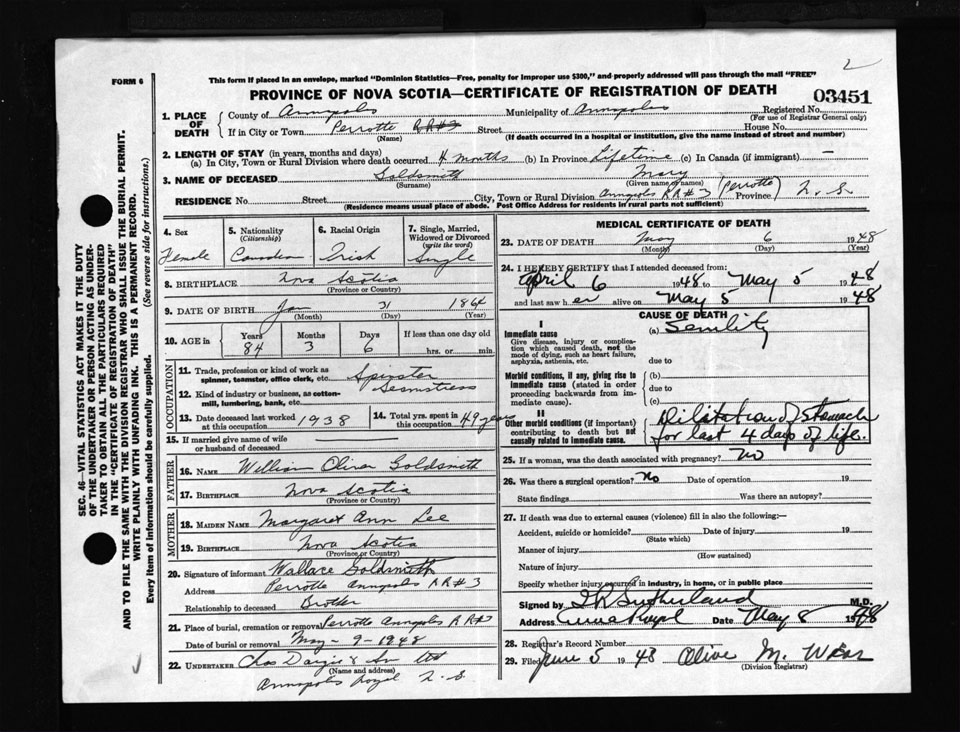 2
FORM 6
This form if placed in an envelope, marked "Dominion Statistics—Free, penalty for improper use $300," and properly addressed will pass through the mail "FREE"
PROVINCE OF NOVA SCOTIA—CERTIFICATE OF REGISTRATION OF DEATH
03451
1. PLACE OF DEATH
County of Annapolis Municipality of Annapolis Registered No.
(For use of Registrar General only)
If in City or Town Perrotte RR#3 Street House No.
(Name) (If death occurred in a hospital or institution, give the name instead of street and number)
2. LENGTH OF STAY (in years, months and days)
(a) In City, Town or Rural Division where death occurred 4 months (b) In Province Lifetime (c) In Canada (if immigrant) —
3. NAME OF DECEASED Goldsmith Mary
(Surname) (Given name or names)
RESIDENCE No. Street City, Town or Rural Division Annapolis RR#3 (Perrotte) Province N.S.
(Residence means usual place of abode. Post Office Address for residents in rural parts not sufficient)
4. Sex Female
5. Nationality (Citizenship) Canadian
6. Racial Origin Irish
7. Single, Married, Widowed or Divorced (write the word) Single
8. BIRTHPLACE Nova Scotia
(Province or Country)
9. DATE OF BIRTH Jan 31 1864
(Month) (Day) (Year)
10. AGE in Years 84 Months 3 Days 6 If less than one day old
hrs. or min.
OCCUPATION
11. Trade, profession or kind of work as spinner, teamster, office clerk, etc. Spinster Seamstress
12. Kind of industry or business, as cotton-mill, lumbering, bank, etc.
13. Date deceased last worked at this occupation 1938
14. Total yrs. spent in this occupation 49 years
15. If married give name of wife or husband of deceased
FATHER
16. NAME William Oliver Goldsmith
17. BIRTHPLACE Nova Scotia
(Province or Country)
MOTHER
18. MAIDEN NAME Margaret Ann Lee
19. BIRTHPLACE Nova Scotia
(Province or Country)
20. Signature of informant Wallace Goldsmith
Address Perrotte Annapolis RR#3
Relationship to deceased Brother
21. Place of burial, cremation or removal Perrotte Annapolis RR#3
Date of burial or removal May-9-1948
22. UNDERTAKER Chas Dargie & Son Ltd
(Name and address)
Annapolis Royal N.S.
MEDICAL CERTIFICATE OF DEATH
23. DATE OF DEATH May 6 1948
(Month) (Day) (Year)
24. I HEREBY CERTIFY that I attended deceased from:
April 6 1948 to May 5 1948
and last saw her alive on May 5 1948
CAUSE OF DEATH
I
Immediate cause
Give disease, injury or complication which caused death, not the mode of dying, such as heart failure, asphyxia, asthenia, etc.
(a) Senility
due to
Morbid conditions, if any, giving rise to immediate cause (stated in order proceeding backwards from immediate cause).
(b)
due to
(c)
II
Other morbid conditions (if important) contributing to death but not causally related to immediate cause.
Dilatation of Stomach
for last 4 days of life.
25. If a woman, was the death associated with pregnancy? No
26. Was there a surgical operation? No Date of operation 19
State findings Was there an autopsy?
27. If death was due to external causes (violence) fill in also the following:—
Accident, suicide or homicide? Date of injury 19
(State which)
Manner of injury
(How sustained)
Nature of injury
Specify whether injury occurred in industry, in home, or in public place
Signed by Sutherland M.D.
Address Date May 8 1948
28. Registrar's Record Number
29. Filed June 5 1948 Olive M. Wear
(Division Registrar)
SEC. 46—VITAL STATISTICS ACT MAKES IT THE DUTY
OF THE UNDERTAKER OR PERSON ACTING AS UNDER-
TAKER TO OBTAIN ALL THE PARTICULARS REQUIRED
IN THE "CERTIFICATE OF REGISTRATION OF DEATH"
AND TO FILE THE SAME WITH THE DIVISION REGISTRAR WHO SHALL ISSUE THE BURIAL PERMIT.
WRITE PLAINLY WITH UNFADING INK. THIS IS A PERMANENT RECORD.
Every item of information should be carefully supplied. (See reverse side for instructions.)